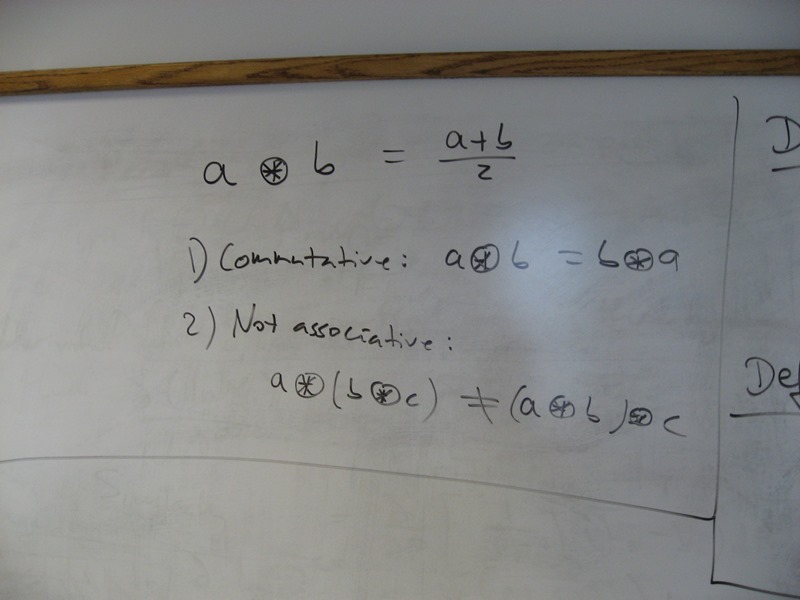 a ⊛ b = a+b/2
1) Commutative: a⊛b = b⊛a
2) Not associative:
a⊛(b⊛c) ≠ (a⊛b)⊛c
D
Def